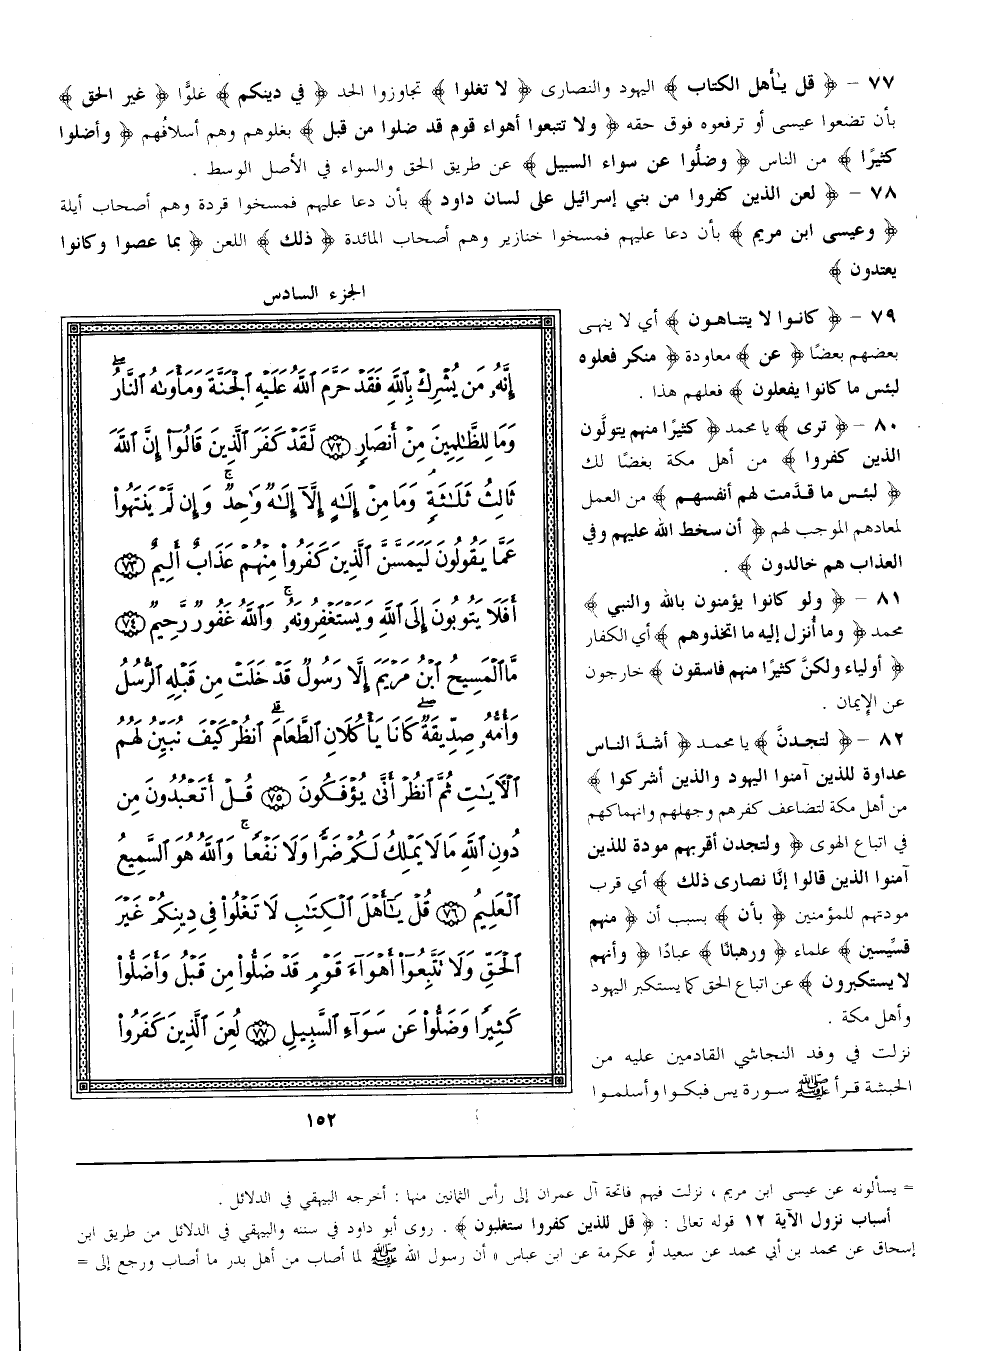 ٧٧ – ﴿ قل يـٰأهل الكتاب ﴾ اليهود والنصارى ﴿ لا تغلوا ﴾ تجاوزوا الحد ﴿ في دينكم ﴾ غلوًّا ﴿ غير الحق ﴾
بأن تضعوا عيسى أو ترفعوه فوق حقه ﴿ ولا تتبعوا أهواء قوم قد ضلوا من قبل ﴾ بغلوهم وهم أسلافُهم ﴿ وأضلوا
كثيرًا ﴾ من الناس ﴿ وضلُّوا عن سواء السبيل ﴾ عن طريق الحق والسواء في الأصل الوسط .
٧٨ – ﴿ لعن الذين كفروا من بني إسرائيل على لسان داود ﴾ بأن دعا عليهم فمسخوا قردة وهم أصحاب أيلة
﴿ وعيسى ابن مريم ﴾ بأن دعا عليهم فمسخوا خنازير وهم أصحاب المائدة ﴿ ذلك ﴾ اللعن ﴿ بما عصوا وكانوا
يعتدون ﴾
٧٩ – ﴿ كانوا لا يتناهون ﴾ أي لا ينهى
بعضهم بعضًا ﴿ عن ﴾ معاودة ﴿ منكر فعلوه
لبئس ما كانوا يفعلون ﴾ فعلهم هذا .
٨٠ – ﴿ ترى ﴾ يا محمد ﴿ كثيرًا منهم يتولَّون
الذين كفروا ﴾ من أهل مكة بغضًا لك
﴿ لبئس ما قدَّمت لهم أنفسهم ﴾ من العمل
لمعادهم الموجب لهم ﴿ أن سخط الله عليهم وفي
العذاب هم خالدون ﴾ .
٨١ – ﴿ ولو كانوا يؤمنون بالله والنبي ﴾
محمد ﴿ وما أُنزل إليه ما اتخذوهم ﴾ أي الكفار
﴿ أولياء ولكنَّ كثيرًا منهم فاسقون ﴾ خارجون
عن الإيمان .
٨٢ – ﴿ لتجدنَّ ﴾ يا محمد ﴿ أشدَّ الناس
عداوة للذين آمنوا اليهود والذين أشركوا ﴾
من أهل مكة لتضاعف كفرهم وجهلهم وانهماكهم
في اتباع الهوى ﴿ ولتجدن أقربهم مودة للذين
آمنوا الذين قالوا إنَّا نصارى ذلك ﴾ أي قرب
مودتهم للمؤمنين ﴿ بأن ﴾ بسبب أن ﴿ منهم
قسِّيسين ﴾ علماء ﴿ ورهبانًا ﴾ عبادًا ﴿ وأنهم
لا يستكبرون ﴾ عن اتباع الحق كما يستكبر اليهود
وأهل مكة .
نزلت في وفد النجاشي القادمين عليه من
الحبشة قرأ ﷺ سورة يس فبكوا وأسلموا
الجزء السادس
إِنَّهُۥ مَن يُشْرِكْ بِٱللَّهِ فَقَدْ حَرَّمَ ٱللَّهُ عَلَيْهِ ٱلْجَنَّةَ وَمَأْوَىٰهُ ٱلنَّارُۖ
وَمَا لِلظَّٰلِمِينَ مِنْ أَنصَارٍ ٧٢ لَّقَدْ كَفَرَ ٱلَّذِينَ قَالُوٓا۟ إِنَّ ٱللَّهَ
ثَالِثُ ثَلَٰثَةٍۘ وَمَا مِنْ إِلَٰهٍ إِلَّآ إِلَٰهٌ وَٰحِدٌۚ وَإِن لَّمْ يَنتَهُوا۟
عَمَّا يَقُولُونَ لَيَمَسَّنَّ ٱلَّذِينَ كَفَرُوا۟ مِنْهُمْ عَذَابٌ أَلِيمٌ ٧٣
أَفَلَا يَتُوبُونَ إِلَى ٱللَّهِ وَيَسْتَغْفِرُونَهُۥۚ وَٱللَّهُ غَفُورٌ رَّحِيمٌ ٧٤
مَّا ٱلْمَسِيحُ ٱبْنُ مَرْيَمَ إِلَّا رَسُولٌ قَدْ خَلَتْ مِن قَبْلِهِ ٱلرُّسُلُ
وَأُمُّهُۥ صِدِّيقَةٌۖ كَانَا يَأْكُلَانِ ٱلطَّعَامَۗ ٱنظُرْ كَيْفَ نُبَيِّنُ لَهُمُ
ٱلْـَٔايَٰتِ ثُمَّ ٱنظُرْ أَنَّىٰ يُؤْفَكُونَ ٧٥ قُلْ أَتَعْبُدُونَ مِن
دُونِ ٱللَّهِ مَا لَا يَمْلِكُ لَكُمْ ضَرًّا وَلَا نَفْعًاۚ وَٱللَّهُ هُوَ ٱلسَّمِيعُ
ٱلْعَلِيمُ ٧٦ قُلْ يَٰٓأَهْلَ ٱلْكِتَٰبِ لَا تَغْلُوا۟ فِى دِينِكُمْ غَيْرَ
ٱلْحَقِّ وَلَا تَتَّبِعُوٓا۟ أَهْوَآءَ قَوْمٍ قَدْ ضَلُّوا۟ مِن قَبْلُ وَأَضَلُّوا۟
كَثِيرًا وَضَلُّوا۟ عَن سَوَآءِ ٱلسَّبِيلِ ٧٧ لُعِنَ ٱلَّذِينَ كَفَرُوا۟
١٥٢
= يسألونه عن عيسى ابن مريم ، نزلت فيهم فاتحة آل عمران إلى رأس الثمانين منها : أخرجه البيهقي في الدلائل .
أسباب نزول الآية ١٢ قوله تعالى : ﴿ قل للذين كفروا ستغلبون ﴾ . روى أبو داود في سننه والبيهقي في الدلائل من طريق ابن
إسحاق عن محمد بن أبي محمد عن سعيد أو عكرمة عن ابن عباس « أن رسول الله ﷺ لما أصاب من أهل بدر ما أصاب ورجع إلى =